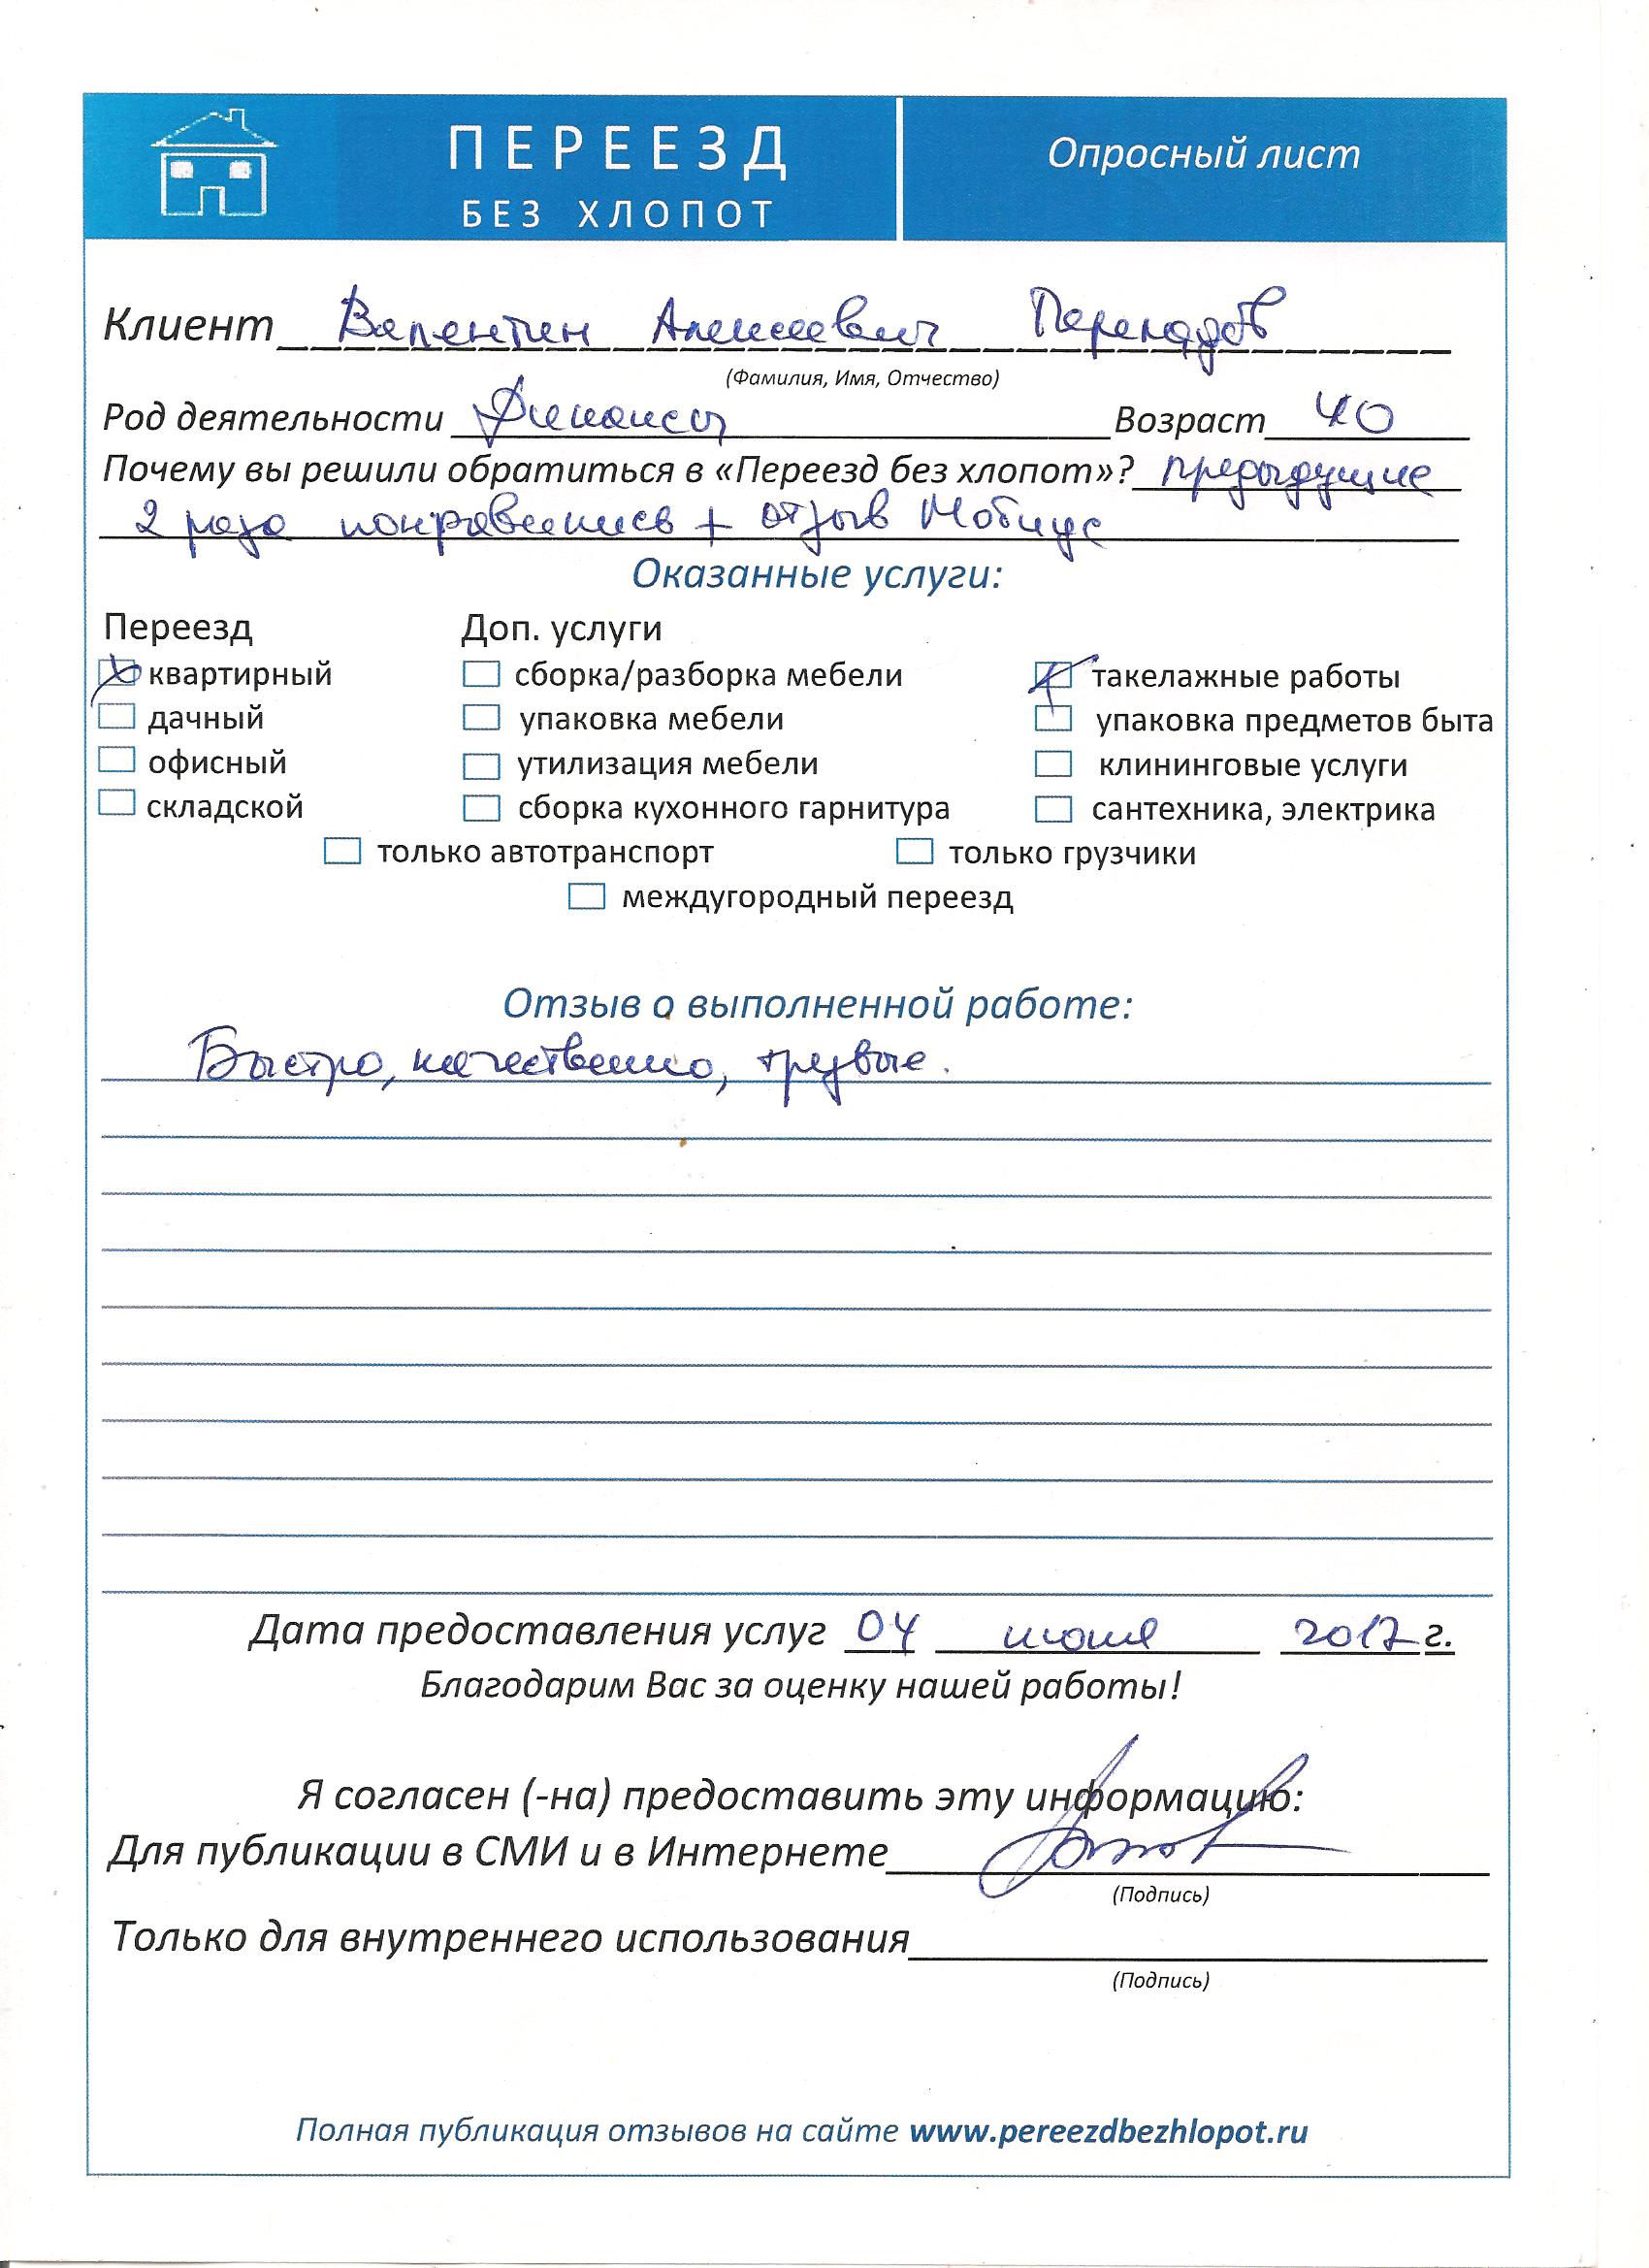 ПЕРЕЕЗД
БЕЗ ХЛОПОТ
Опросный лист
Клиент Валентин Алексеевич
(Фамилия, Имя, Отчество)
Род деятельности Финансы Возраст 40
Почему вы решили обратиться в «Переезд без хлопот»? предыдущие
2 раза понравились + отзыв Мобиус
Оказанные услуги:
Переезд Доп. услуги
квартирный сборка/разборка мебели такелажные работы
дачный упаковка мебели упаковка предметов быта
офисный утилизация мебели клининговые услуги
складской сборка кухонного гарнитура сантехника, электрика
только автотранспорт только грузчики
междугородный переезд
Отзыв о выполненной работе:
Быстро, качественно, трезвые.
Дата предоставления услуг 04 июня 2017 г.
Благодарим Вас за оценку нашей работы!
Я согласен (-на) предоставить эту информацию:
Для публикации в СМИ и в Интернете
(Подпись)
Только для внутреннего использования
(Подпись)
Полная публикация отзывов на сайте www.pereezdbezhlopot.ru